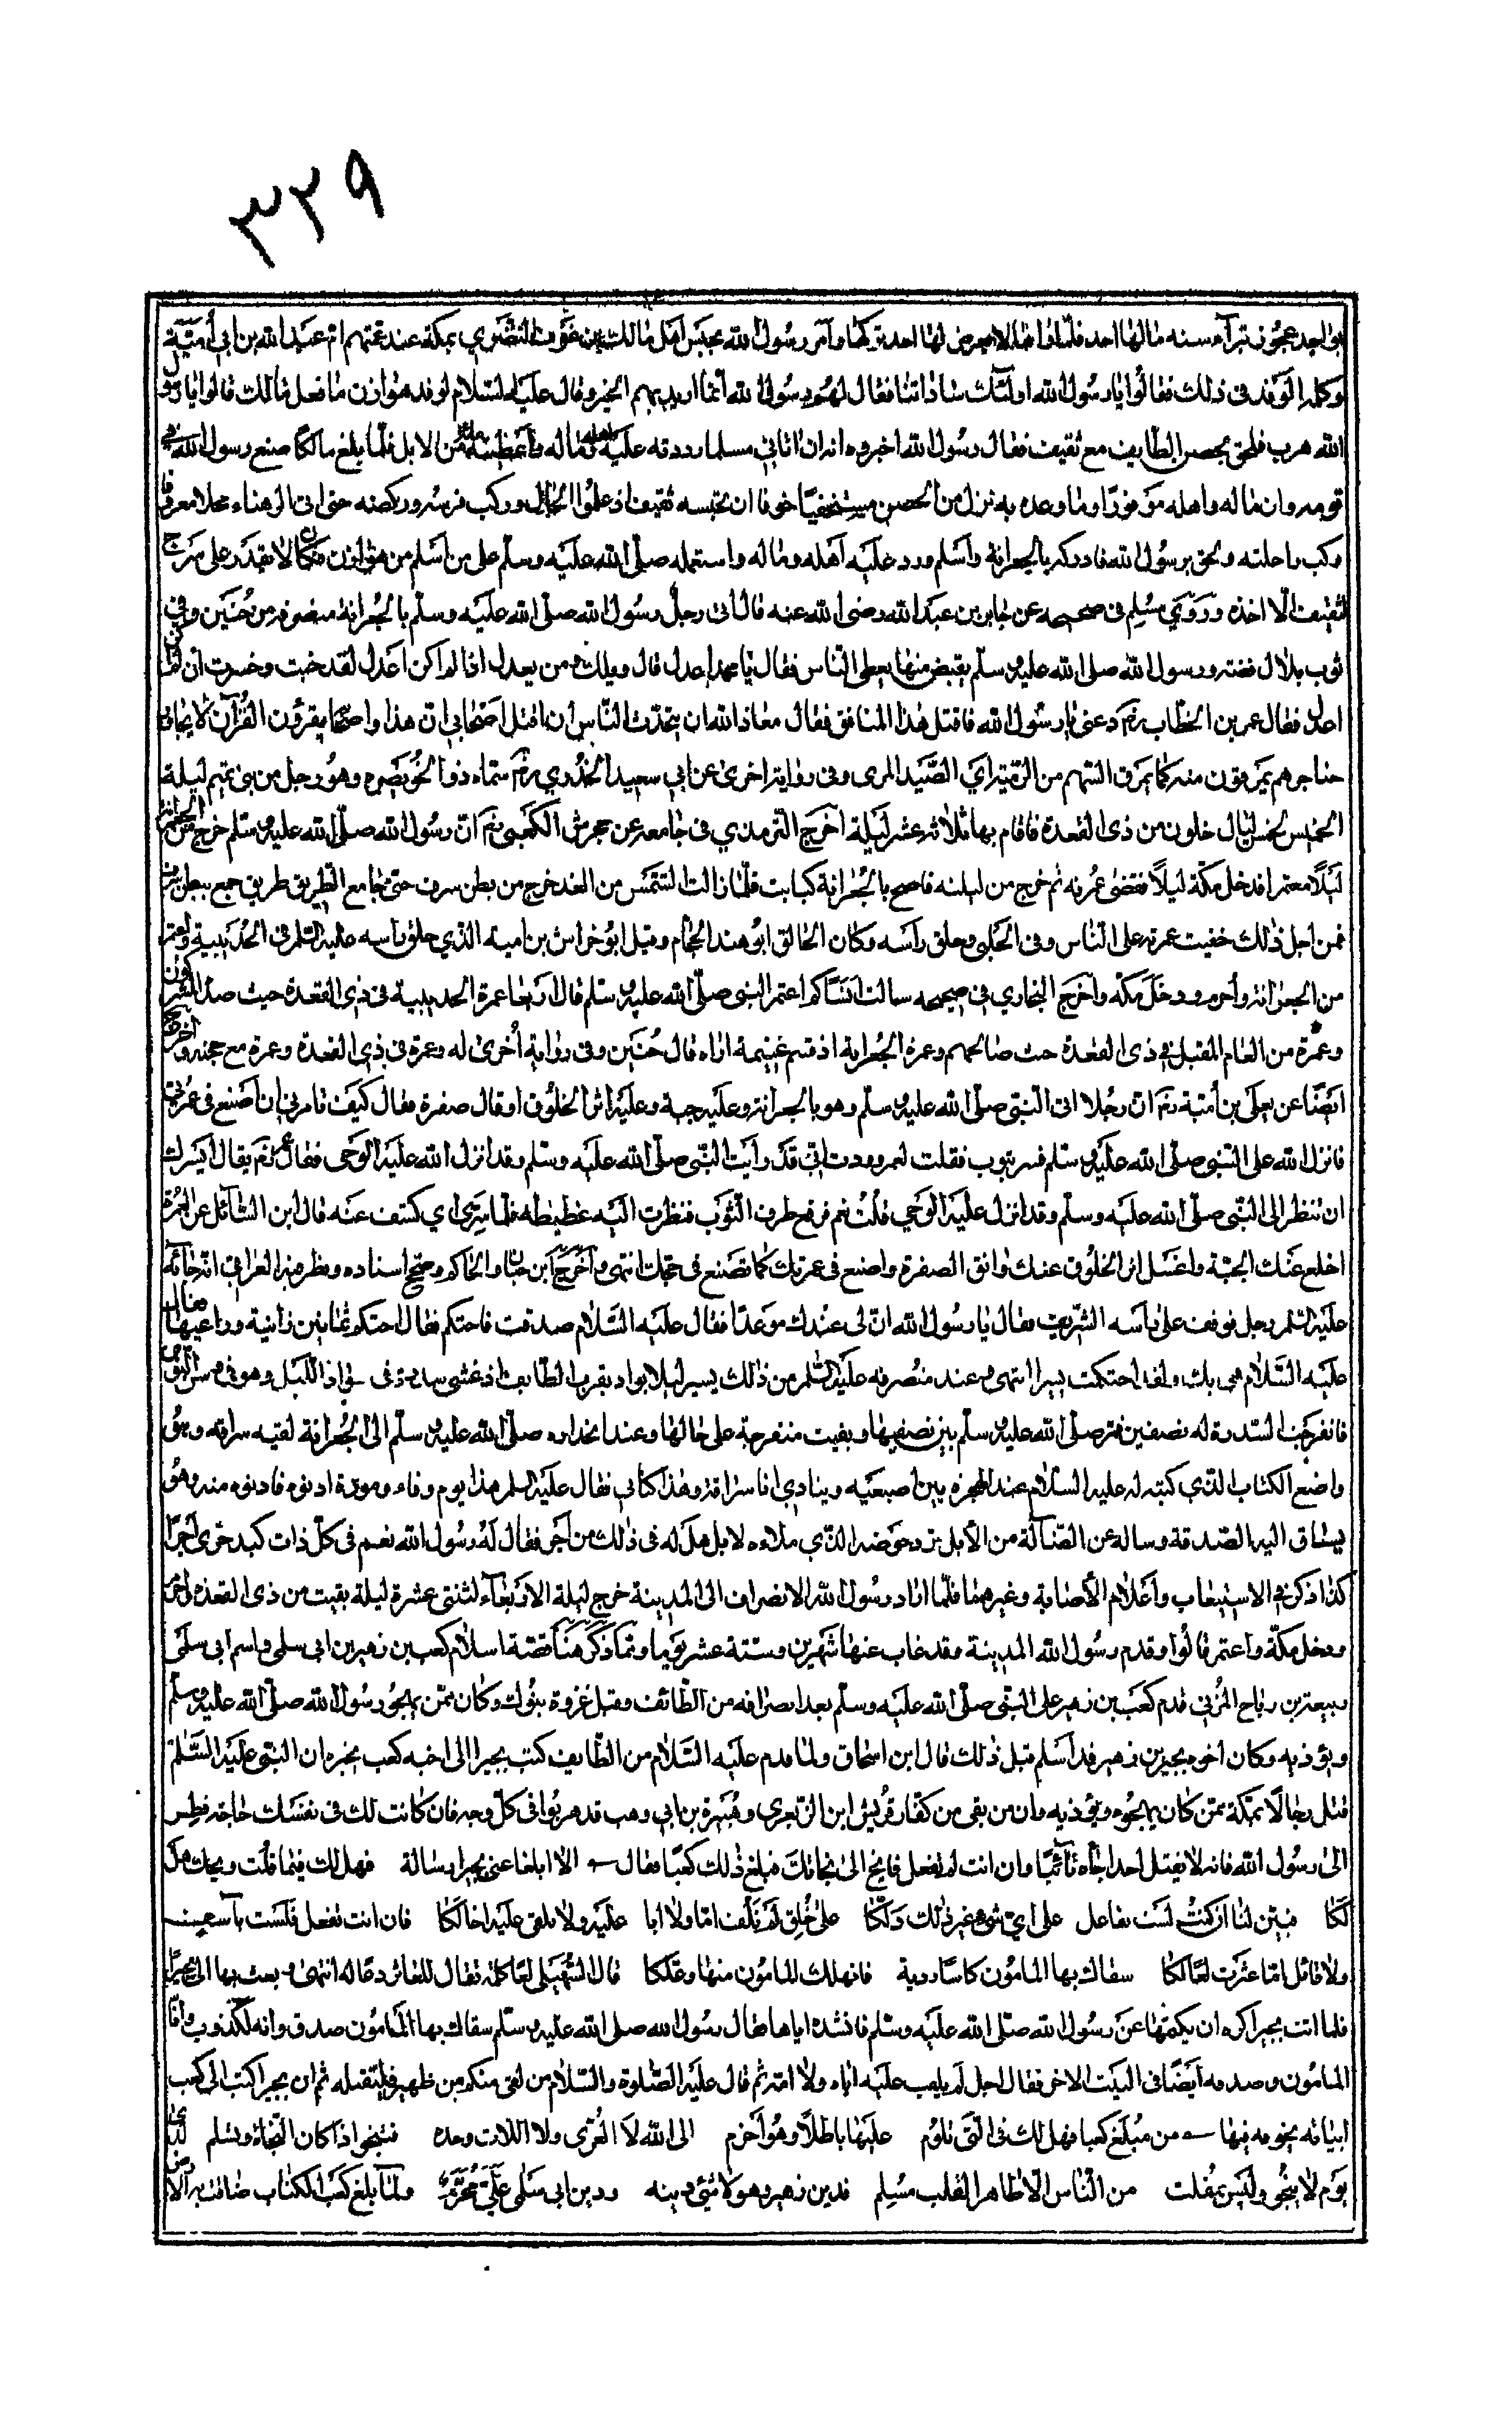 ٣٢٩
بواجد عجوز تبرآء سنه مالها احد فلما لاحد تركها وامر رسول الله بحبس اهل مالك بن عوف النضري بمكة عند عمتهم ام عبد الله بن ابي أمية
وكلم الوفد في ذلك فقالوا يا رسول الله اولئك ساداتنا فقال لهم رسول الله انما اريد بهم الخير وقال عليه السلام لوفد هوازن ما فعل مالك قالوا يا رسول
الله هرب فلحق بحصن الطايف مع ثقيف فقال رسول الله اخبروه انه ان اتاني مسلما رددته عليه اهله وماله واعطيته مائة من الابل فلما بلغ مالكا صنع رسول الله في
قومه وان ماله واهله موفورا وما وعده به نزل من الحصن مستخفيا خوفا ان تحبسه ثقيف اذ علموا الحال وركب فرسه وركضه حتى اتى الدهناء محلا معروفا
وركب راحلته ولحق برسول الله فادركه بالجعرانة واسلم ورد عليه اهله وماله واستعمله صلى الله عليه وسلم على من اسلم من هوازن فكان لا يقدر على سرح
لثقيف الا اخذه وروى مسلم في صحيحه عن جابر بن عبد الله رضى الله عنه قال اتى رجل رسول الله صلى الله عليه وسلم بالجعرانة منصرفه من حنين وفي
ثوب بلال فضة ورسول الله صلى الله عليه وسلم يقبض منها يعطى الناس فقال يا محمد اعدل قال ويلك ومن يعدل اذا لم اكن اعدل لقد خبت وخسرت ان لم اكن
اعدل فقال عمر بن الخطاب رضم دعنى يا رسول الله فاقتل هذا المنافق فقال معاذ الله ان يتحدث الناس ان اقتل اصحابي ان هذا واصحابه يقرؤن القرآن لا يجاوز
حناجرهم يمرقون منه كما يمرق السهم من الرمية اي الصيد المرمى وفي رواية اخرى عن ابي سعيد الخدري رضم سماه ذو الخويصره وهو رجل من بني تميم ليلة
الخميس لخمس ليال خلون من ذي القعدة فاقام بها ثلاثة عشر ليلة اخرج الترمذي في جامعه عن محرش الكعبي رضم ان رسول الله صلى الله عليه وسلم خرج من الجعرانة
ليلا معتمرا فدخل مكة ليلا فقضى عمرته ثم خرج من ليلته فاصبح بالجعرانة كبائت فلما زالت الشمس من الغد خرج من بطن سرف حتى جامع الطريق طريق جمع ببطن سرف
فمن اجل ذلك خفيت عمرته على الناس وفي الحلبى وحلق رأسه وكان الحالق ابو هند الحجام وقيل ابو خراش بن امية الذي حلق رأسه عليه السلم في الحديبية واعتمر
من الجعرانة واحرم ودخل مكة واخرج البخاري في صحيحه سالت انسا كم اعتمر النبى صلى الله عليه وسلم قال اربعا عمرة الحديبية في ذي القعدة حيث صده المشركون
وعمرة من العام المقبل في ذي القعدة حيث صالحهم وعمرة الجعرانة اذ قسم غنيمة اراه قال حنين وفي رواية أخرى له وعمرة في ذي القعدة وعمرة مع حجته واخرج
ايضا عن يعلى بن أمية رضم ان رجلا اتى النبي صلى الله عليه وسلم وهو بالجعرانة وعليه جبة وعليه اثر الخلوق او قال صفرة فقال كيف تامرني ان اصنع في عمرتي
فانزل الله على النبي صلى الله عليه وسلم فستر بثوب فقلت لعمر وددت اني قد رأيت النبى صلى الله عليه وسلم وقد انزل الله عليه الوحى فقال عمر تعال أيسرك
ان تنظر الى النبى صلى الله عليه وسلم وقد انزل عليه الوحي قلت نعم فرفع طرف الثوب فنظرت اليه غطيطه فلما سرى اي كشف عنه قال اين السائل عن العمرة
اخلع عنك الجبة واغسل اثر الخلوق عنك وانق الصفرة واصنع في عمرتك كما تصنع في حجتك انتهى واخرج ابن حبان والحاكم وصحح اسناده ونظر فيه العراقي انه جاءه
عليه السلم رجل فوقف على رأسه الشريف فقال يا رسول الله ان لي عندك موعدا فقال عليه السلام صدقت فاحتكم فقال احتكم ثمانين ضانية وراعيها فقال
عليه السلام هي لك ولقد احتكمت يسيرا انتهى وعند منصرفه عليه السلم من ذلك يسير ليلا بواد بقرب الطائف اذ غشى سدرة في سواد الليل وهو في وسن النوم
فانفرجت السدرة له نصفين فمر صلى الله عليه وسلم بين نصفيها وبقيت منفرجة على حالها وعند انحداره صلى الله عليه وسلم الى الجعرانة لقيه سراقه وهو
واضع الكتاب الذي كتبه له عليه السلام عند الهجرة بين اصبعيه وينادي انا سراقة وهذا كتابي فقال عليه السلم هذا يوم وفاء ومودة ادنوه فادنوه منه وهو
يساق اليه الصدقة وساله عن الضالة من الابل ترد حوضه الذي ملاءه لابل هل له في ذلك من اجر فقال له رسول الله نعم في كل ذات كبد حرى أجرا
كذا ذكر في الاستيعاب واعلام الأصابة وغيرهما فلما اراد رسول الله الانصراف الى المدينة خرج ليلة الاربعاء لثنتى عشرة ليلة بقيت من ذي القعدة واحرم
ودخل مكة واعتمر قالوا وقدم رسول الله المدينة وقد غاب عنها شهرين وستة عشر يوما ومما ذكر هنا قصة اسلام كعب بن زهير بن ابي سلمى واسم ابي سلمى
ربيعة بن رياح المزني قدم كعب بن زهير على النبى صلى الله عليه وسلم بعد انصرافه من الطائف وقبل غزوة تبوك وكان ممن يهجو رسول الله صلى الله عليه وسلم
ويؤذيه وكان اخوه بجير بن زهير قد أسلم قبل ذلك قال ابن اسحاق ولما قدم عليه السلام من الطايف كتب بجير الى اخيه كعب يخبره ان النبى عليه السلم
قتل رجالا بمكة ممن كان يهجوه ويؤذيه وان من بقى من كفار قريش ابن الزبعرى وهبيرة بن ابي وهب قد هربوا في كل وجه فان كانت لك في نفسك حاجة فطر
الى رسول الله فانه لا يقتل احدا جاءه تائبا وان انت لم تفعل فانج الى نجاتك فبلغ ذلك كعبا فقال الا ابلغا عني بجيرا رسالة فهل لك فيما قلت ويحك هل
لكا فبين لنا ان كنت لست بفاعل على اي شيء غير ذلك دلكا على خلق لم تلف اما ولا ابا عليه ولا تلفى عليه اخا لكا فان انت لم تفعل فلست بآسف
ولا قائل اما عثرت لعا لكا سقاك بها المامون كاسا روية فانهلك المامون منها وعلكا قال السهيلى لعا كلمة تقال للعاثر دعا له انتهى وبعث بها الى بجير
فلما اتت بجيرا كره ان يكتمها عن رسول الله صلى الله عليه وسلم فانشده اياها فقال رسول الله صلى الله عليه وسلم سقاك بها المامون صدق وانه لكذوب وانا
المامون وصدقه أيضا في البيت الاخر فقال اجل لم يلف عليه اباه ولا امه ثم قال عليه الصلوة والسلام من لقى منكم بن زهير فليقتله ثم ان بجيرا كتب الى كعب
ابياتا يخوفه فيها من مبلغ كعبا فهل لك في التى تلوم عليها باطلا وهو أحزم الى الله لا العزى ولا اللات وحده فتنجو اذا كان النجاة وتسلم لدى
يوم لا ينجو وليس بمفلت من الناس الا طاهر القلب مسلم فدين زهير وهو لا شئ دينه ودين ابي سلمى على محرم ولما بلغ كعب الكتاب ضاقت به الارض